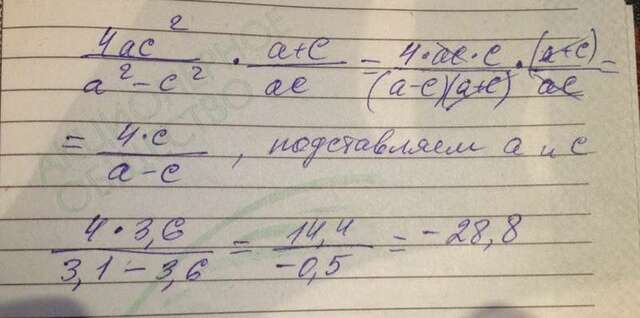 4ac²/(a²-c²) · (a+c)/(ac) = (4·ac·c)/((a-c)(a+c)) · (a+c)/(ac) =
= (4·c)/(a-c), подставляем a и c
(4·3,6)/(3,1-3,6) = 14,4/(-0,5) = -28,8